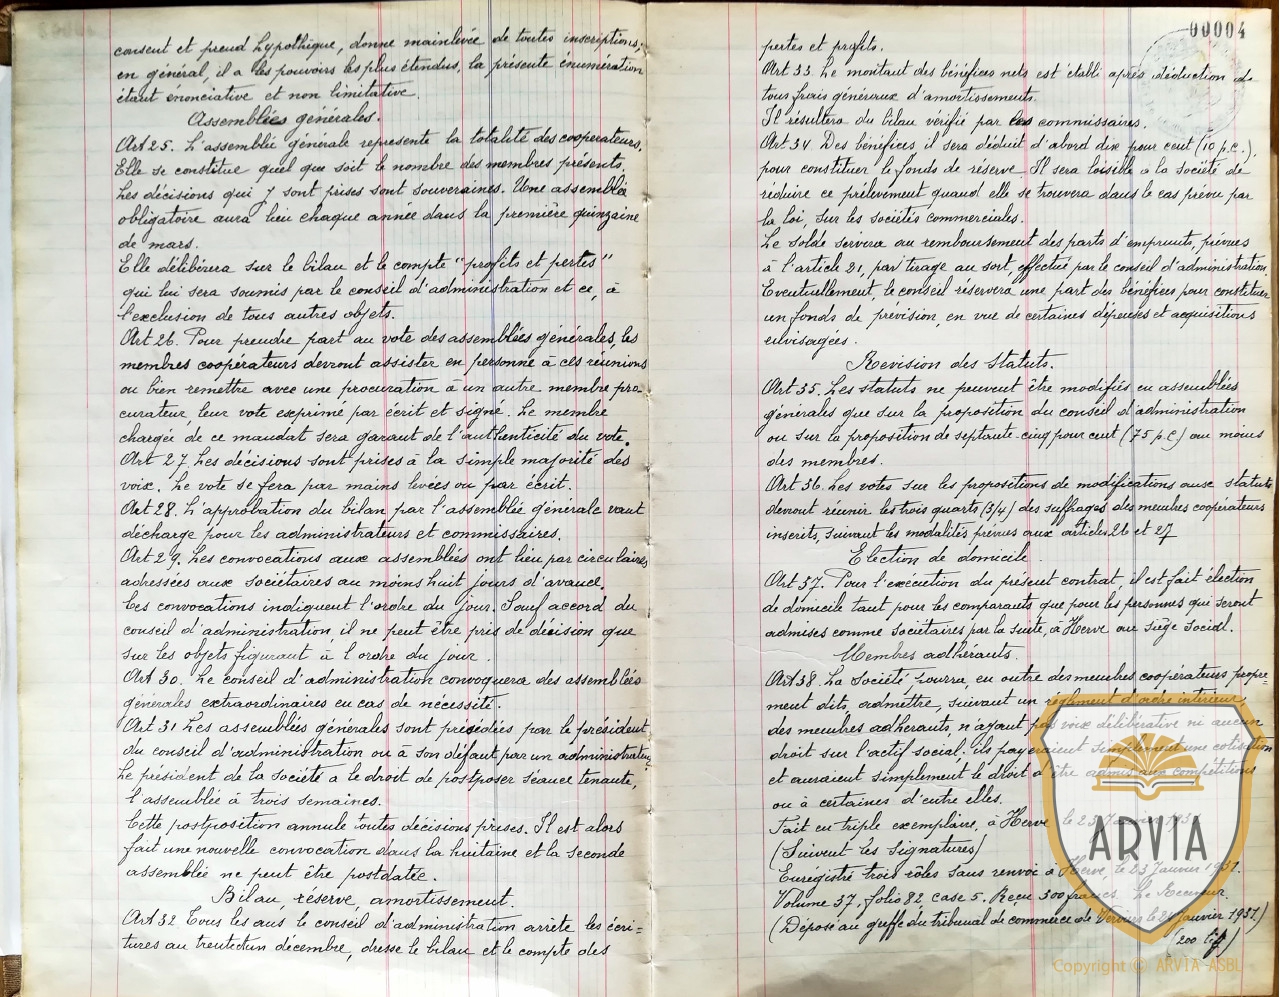 consent et prend hypothèque, donne mainlevée de toutes inscriptions;
en général, il a les pouvoirs les plus étendus, la présente énumération
étant énonciative et non limitative.
Assemblées générales.
Art 25. L'assemblée générale représente la totalité des coopérateurs.
Elle se constitue quel que soit le nombre des membres présents.
Les décisions qui y sont prises sont souveraines. Une assemblée
obligatoire aura lieu chaque année dans la première quinzaine
de mars.
Elle délibérera sur le bilan et le compte "profits et pertes"
qui lui sera soumis par le conseil d'administration et ce, à
l'exclusion de tous autres objets.
Art 26. Pour prendre part au vote des assemblées générales, les
membres coopérateurs devront assister en personne à ces réunions
ou bien remettre avec une procuration à un autre membre pro-
curateur, leur vote exprimé par écrit et signé. Le membre
chargée de ce mandat sera garant de l'authenticité du vote.
Art 27 Les décisions sont prises à la simple majorité des
voix. Le vote se fera par mains levées ou par écrit.
Art 28. L'approbation du bilan par l'assemblée générale vaut
décharge pour les administrateurs et commissaires.
Art 29. Les convocations aux assemblées ont lieu par circulaires
adressées aux sociétaires au moins huit jours d'avance.
Les convocations indiquent l'ordre du jour. Sauf accord du
conseil d'administration, il ne peut être pris de décision que
sur les objets figurant à l'ordre du jour.
Art 30. Le conseil d'administration convoquera des assemblées
générales extraordinaires en cas de nécessité.
Art 31 Les assemblées générales sont présidées par le président
du conseil d'administration ou à son défaut par un administrateur.
Le président de la société a le droit de postposer séance tenante,
l'assemblée à trois semaines.
Cette postposition annule toutes décisions prises. Il est alors
fait une nouvelle convocation dans la huitaine et la seconde
assemblée ne peut être postdatée.
Bilan, réserve, amortissement.
Art 32 Tous les ans le conseil d'administration arrête les écri=
tures au trente et un décembre, dresse le bilan et le compte des
00004
pertes et profits.
Art 33. Le montant des bénéfices nets est établi après déduction de
tous frais généraux d'amortissements.
Il résultera du bilan vérifié par les commissaires.
Art. 34 Des bénéfices il sera déduit d'abord dix pour cent (10 p.c.).
pour constituer le fonds de réserve. Il sera loisible à la société de
réduire ce prélèvement quand elle se trouvera dans le cas prévu par
la loi, sur les sociétés commerciales.
Le solde servira au remboursement des parts d'emprunts, prévues
à l'article 21, par tirage au sort, effectué par le conseil d'administration.
Eventuellement, le conseil réservera une part des bénéfices pour constituer
un fonds de prévision, en vue de certaines dépenses et acquisitions
envisagées.
Revision des Statuts.
Art 35. Les statuts ne peuvent être modifiés en assemblées
générales que sur la proposition du conseil d'administration
ou sur la proposition de septante-cinq pour cent (75 p.c.) au moins
des membres.
Art 36. Les votes sur les propositions de modifications aux statuts
devront réunir les trois quarts (3/4) des suffrages des membres coopérateurs
inscrits, suivant les modalités prévues aux articles 26 et 27
Election de domicile.
Art 37. Pour l'exécution du présent contrat, il est fait élection
de domicile tant pour les comparants que pour les personnes qui seront
admises comme sociétaires par la suite, à Herve au siège social.
Membres adhérants.
Art 38 La Société pourra, en outre des membres coopérateurs propre=
ment dits, admettre, suivant un règlement d'ordre intérieur,
des membres adhérants, n'ayant pas voix délibérative ni aucun
droit sur l'actif social; ils payeraient simplement une cotisation
et auraient simplement le droit à être admis aux compétitions
ou à certaines d'entre elles.
Fait en triple exemplaire, à Herve le 23 Janvier 1937.
(Suivent les signatures)
Enregistré trois rôles sans renvoi à Herve, le 23 Janvier 1937.
Volume 37, folio 82, case 5. Reçu 300 francs. Le Receveur.
(Déposé au greffe du tribunal de commerce de Verviers le 29 Janvier 1937.)
ARVIA
Copyright © ARVIA ASBL